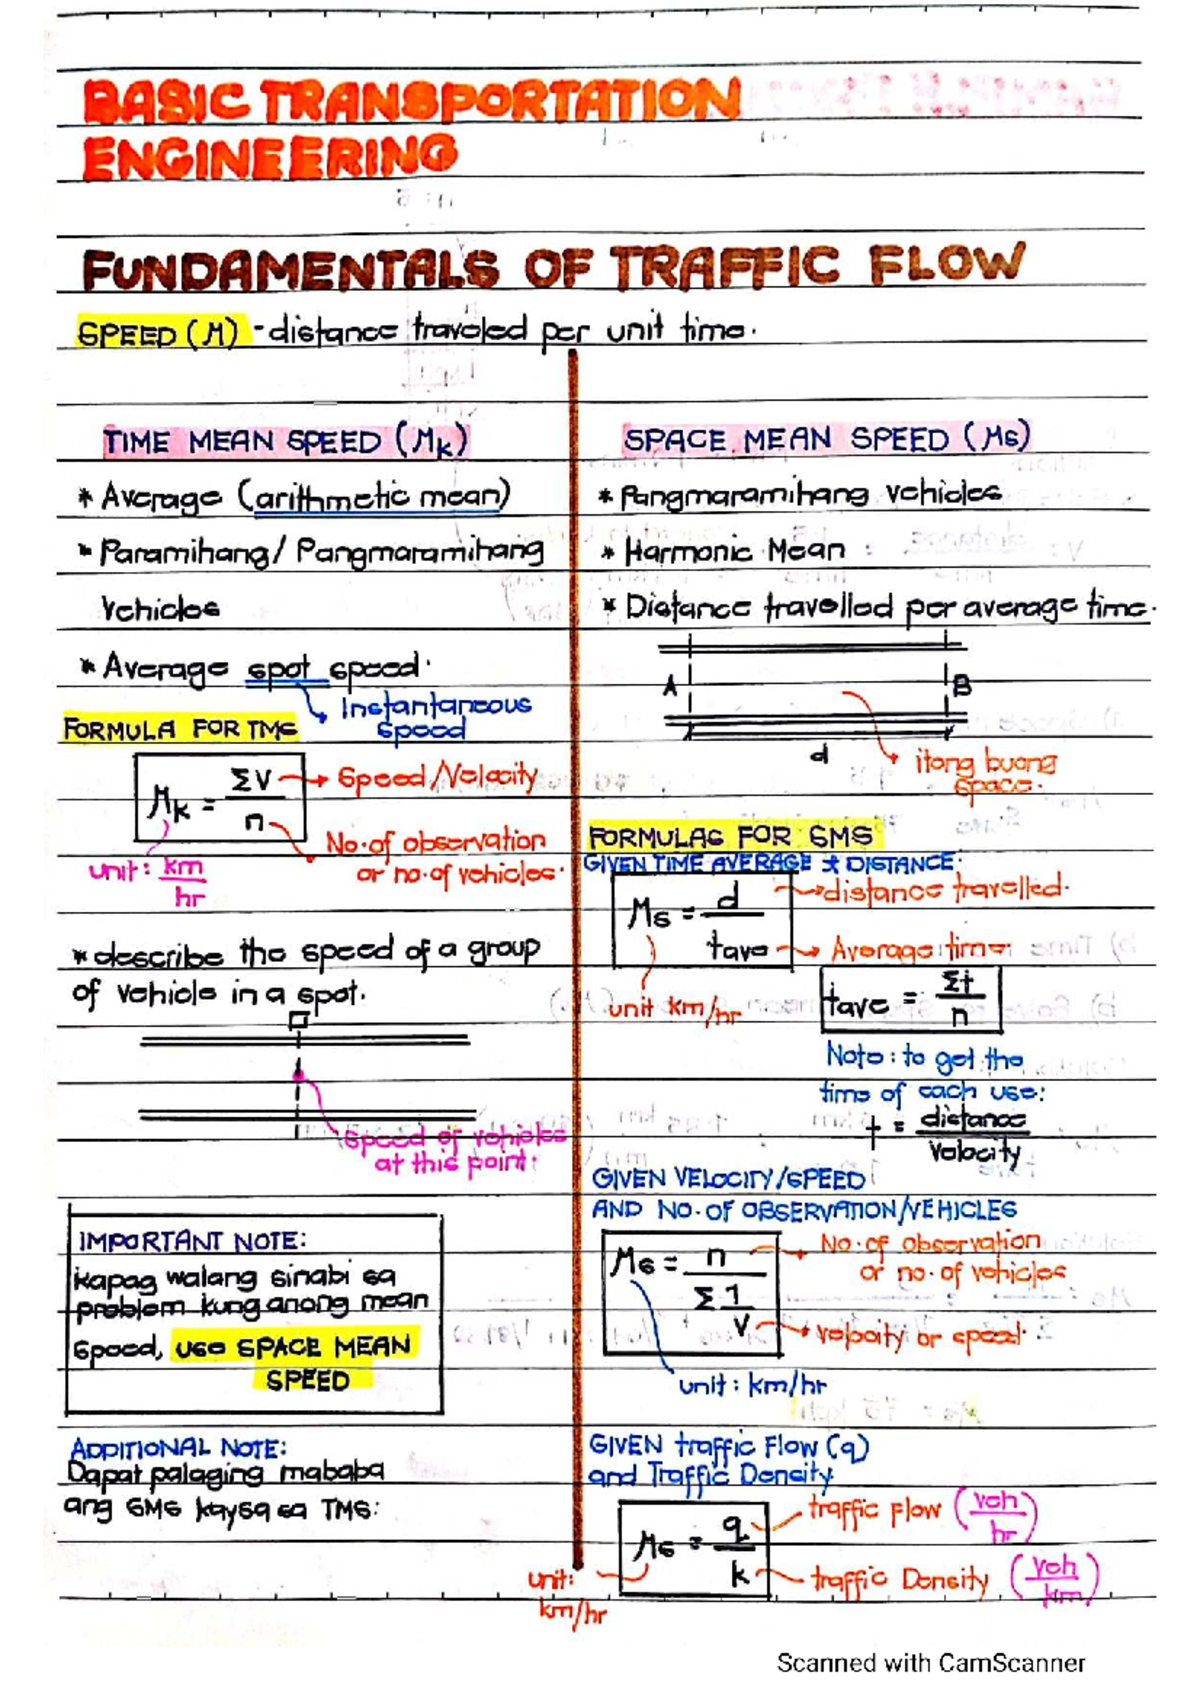 BASIC TRANSPORTATION
ENGINEERING
FUNDAMENTALS OF TRAFFIC FLOW
SPEED (μ) - distance traveled per unit time.
TIME MEAN SPEED (μk)
* Average (arithmetic mean)
* Paramihang / Pangmaramihang
vehicles
* Average spot speed.
Instantaneous
speed
FORMULA FOR TMS
μk = ΣV / n
Speed/Velocity
No. of observation
or no. of vehicles.
unit: km/hr
* describe the speed of a group
of vehicle in a spot.
Speed of vehicles
at this point.
IMPORTANT NOTE:
kapag walang sinabi sa
problem kung anong mean
speed, use SPACE MEAN
SPEED
ADDITIONAL NOTE:
Dapat palaging mababa
ang SMS kaysa sa TMS.
SPACE MEAN SPEED (μs)
* Pangmaramihang vehicles
* Harmonic Mean
* Distance travelled per average time.
A B
d
itong buong
space.
FORMULAS FOR SMS
GIVEN TIME AVERAGE & DISTANCE:
μs = d / tave
distance travelled.
Average time
unit km/hr
tave = Σt / n
Note: to get the
time of each use:
t = distance / velocity
GIVEN VELOCITY/SPEED
AND NO. OF OBSERVATION/VEHICLES
μs = n / Σ 1/V
No. of observation
or no. of vehicles
velocity or speed.
unit: km/hr
GIVEN traffic Flow (q)
and Traffic Density
μs = q / k
traffic Flow (veh/hr)
traffic Density (veh/km)
unit:
km/hr
Scanned with CamScanner